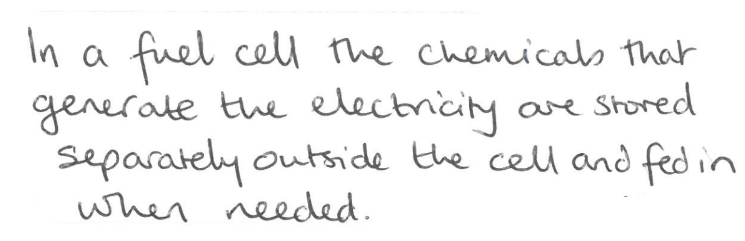 In a fuel cell the chemicals that
generate the electricity are stored
separately outside the cell and fed in
when needed.